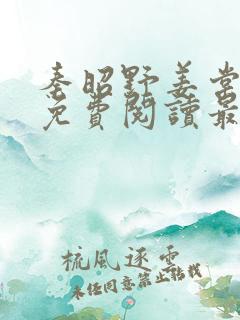 秦昭野姜棠
免費閱讀最
梳風逐雲
未任同意禁止轉載